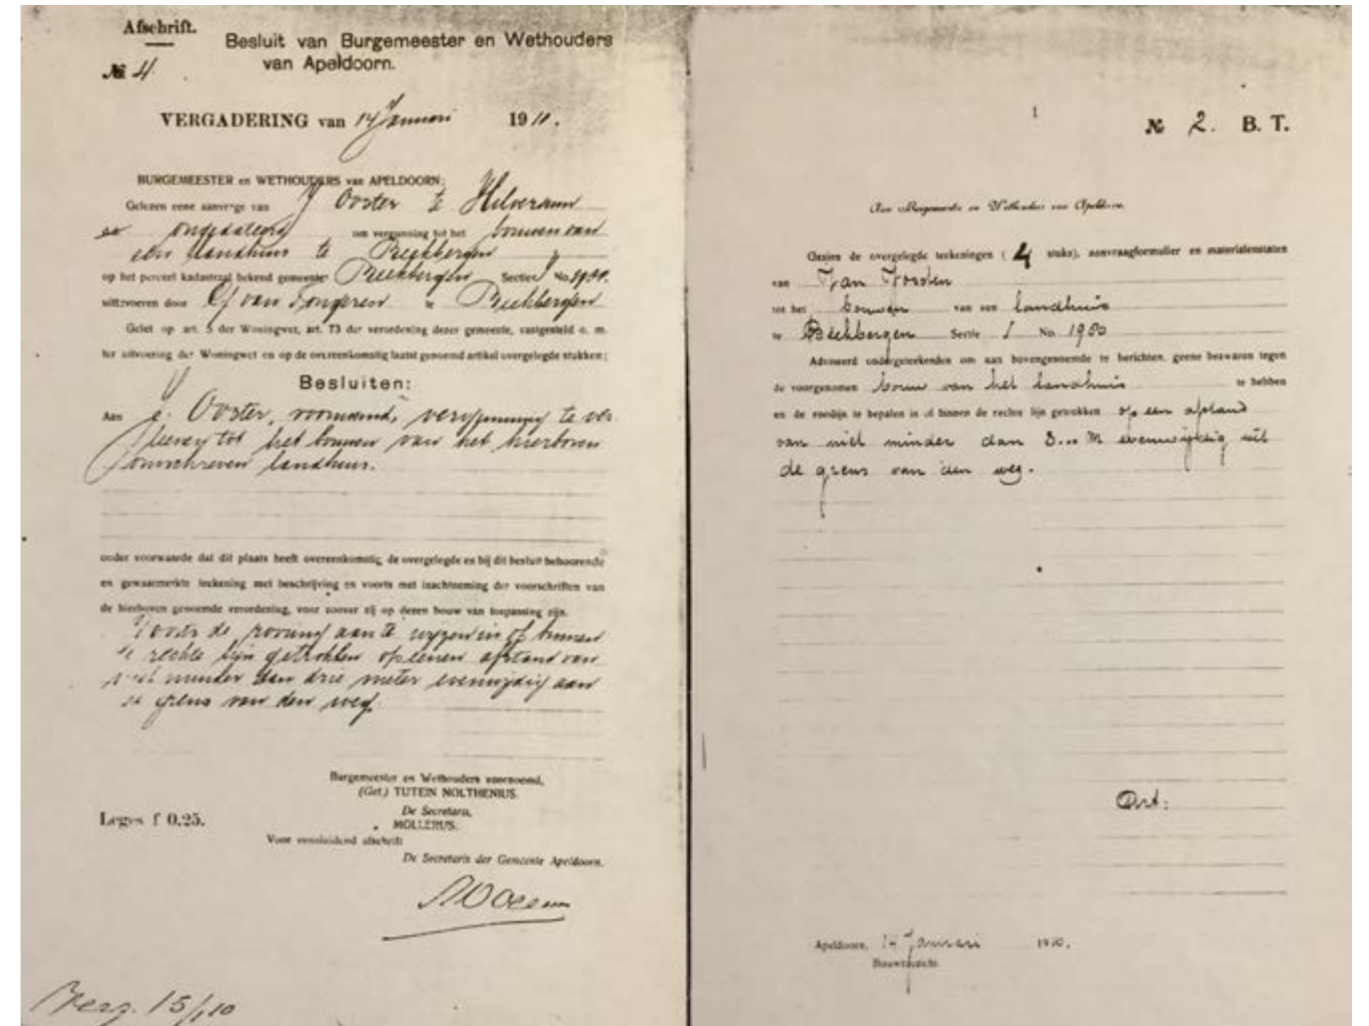 Afschrift.
Besluit van Burgemeester en Wethouders
van Apeldoorn.
№ 4
VERGADERING van 14 Januari 1910.
BURGEMEESTER en WETHOUDERS van APELDOORN;
Gelezen eene aanvrage van J Ooster te Hilversum
om vergunning tot het bouwen van
een landhuis te Beekbergen
op het perceel kadastraal bekend gemeente Beekbergen Sectie I No. 1950.
uittevoeren door van Tongeren te Beekbergen
Gelet op art. 5 der Woningwet, art. 73 der verordening dezer gemeente, vastgesteld o. m.
ter uitvoering der Woningwet en op de overeenkomstig laatst genoemd artikel overgelegde stukken;
Besluiten:
Aan J. Ooster, voornoemd, vergunning te ver-
leenen tot het bouwen van het hierboven
omschreven landhuis.
onder voorwaarde dat dit plaats heeft overeenkomstig de overgelegde en bij dit besluit behoorende
en gewaarmerkte teekening met beschrijving en voorts met inachtneming der voorschriften van
de hierboven genoemde verordening, voor zoover zij op dezen bouw van toepassing zijn.
Voorts de rooiing aan te wijzen in of binnen
de rechte lijn getrokken op eenen afstand van
niet minder dan drie meter evenwijdig aan
de grens van den weg.
Burgemeester en Wethouders voornoemd,
(Get.) TUTEIN NOLTHENIUS.
De Secretaris,
MOLLERUS.
Leges f 0.25.
Voor eensluidend afschrift
De Secretaris der Gemeente Apeldoorn.
Verz. 15/1 10
1
№ 2. B. T.
Aan Burgemeester en Wethouders van Apeldoorn.
Gezien de overgelegde teekeningen (4 stuks), aanvraagformulier en materialenstaten
van Jan
tot het bouwen van een landhuis
te Beekbergen Sectie I No. 1950
Adviseerd ondergeteekenden om aan bovengenoemde te berichten, geene bezwaren tegen
de voorgenomen bouw van het landhuis te hebben
en de rooilijn te bepalen in of binnen de rechte lijn getrokken op een afstand
van niet minder dan 3.00 M evenwijdig uit
de grens van den weg.
Apeldoorn, 14 Januari 1910.
Bouwtoezicht.